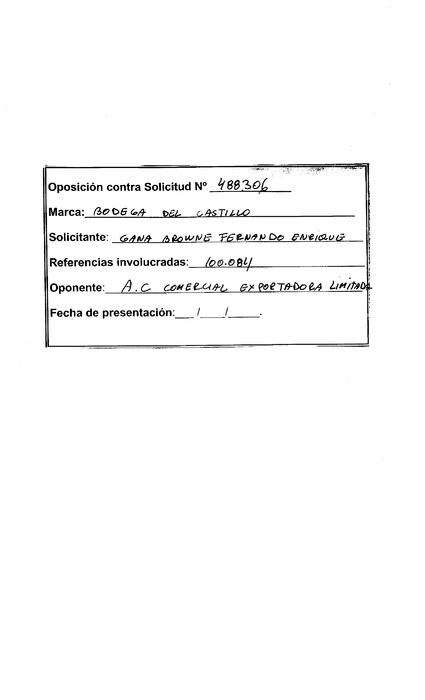 Oposición contra Solicitud Nº 488.306
Marca: BODEGA DEL CASTILLO
Solicitante: GANA BROWNE FERNANDO ENRIQUE
Referencias involucradas: 100.084
Oponente: A.C COMERCIAL EXPORTADORA LIMITADA
Fecha de presentación:___/___/___.